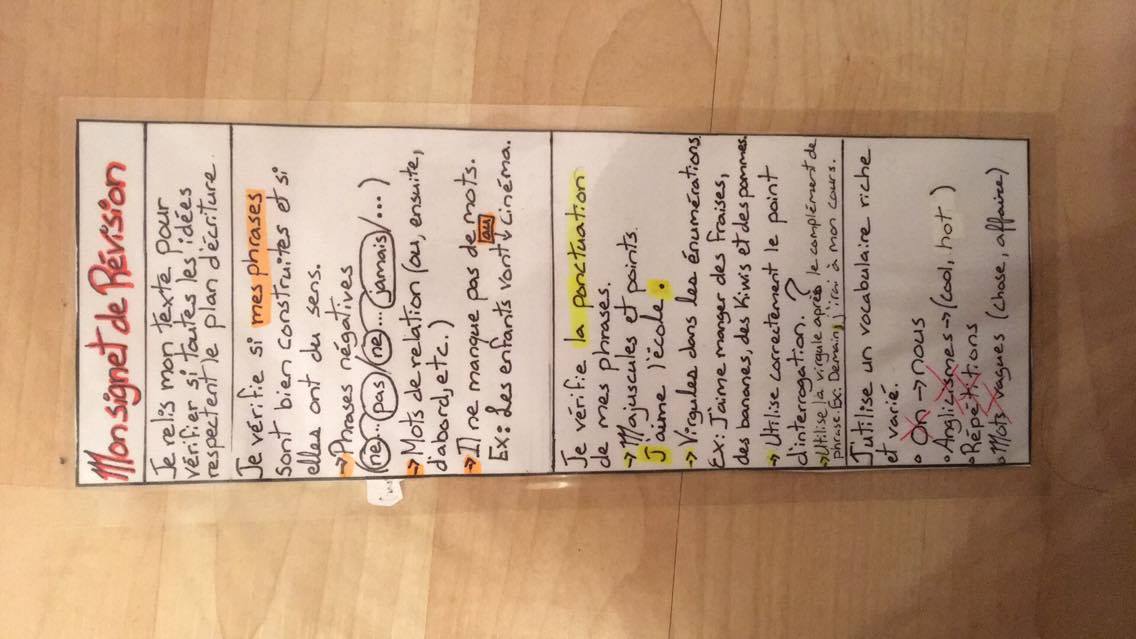 Mon signet de Révision
Je relis mon texte pour
vérifier si toutes les idées
respectent le plan d'écriture.
Je vérifie si mes phrases
sont bien construites et si
elles ont du sens.
→ Phrases négatives
(ne... pas/ne... jamais/...)
→ Mots de relation (ou, ensuite,
d'abord, etc.)
→ Il ne manque pas de mots.
au
Ex: Les enfants vont v cinéma.
Je vérifie la ponctuation
de mes phrases.
→ Majuscules et points
J'aime l'école.
→ Virgules dans les énumérations
Ex: J'aime manger des fraises,
des bananes, des Kiwis et des pommes.
→ Utilise correctement le point
d'interrogation. ?
→ Utilise la virgule après le complément de
phrase. Ex: Demain, j'irai à mon cours.
J'utilise un vocabulaire riche
et varié.
• On → nous
• Anglicismes → (cool, hot)
• Répétitions
• Mots vagues (chose, affaire)